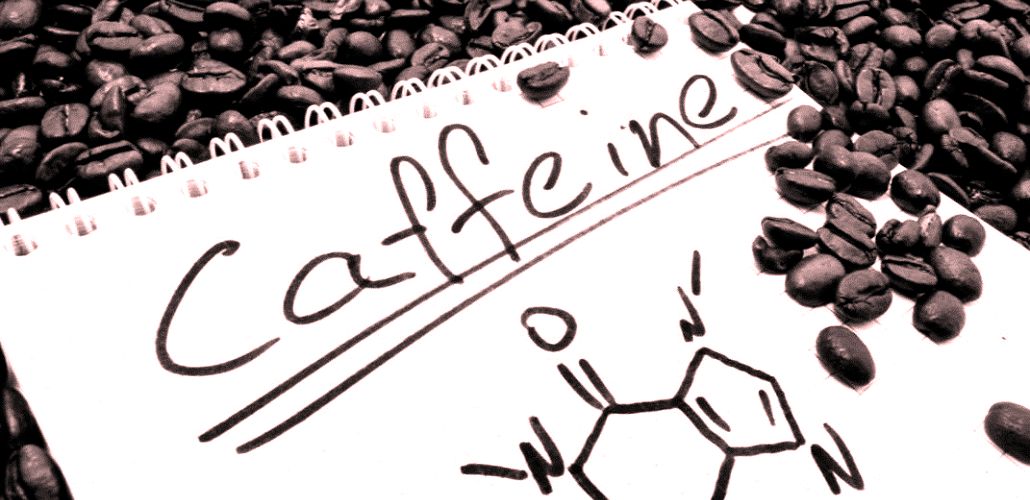 Caffeine
N
O
N
N